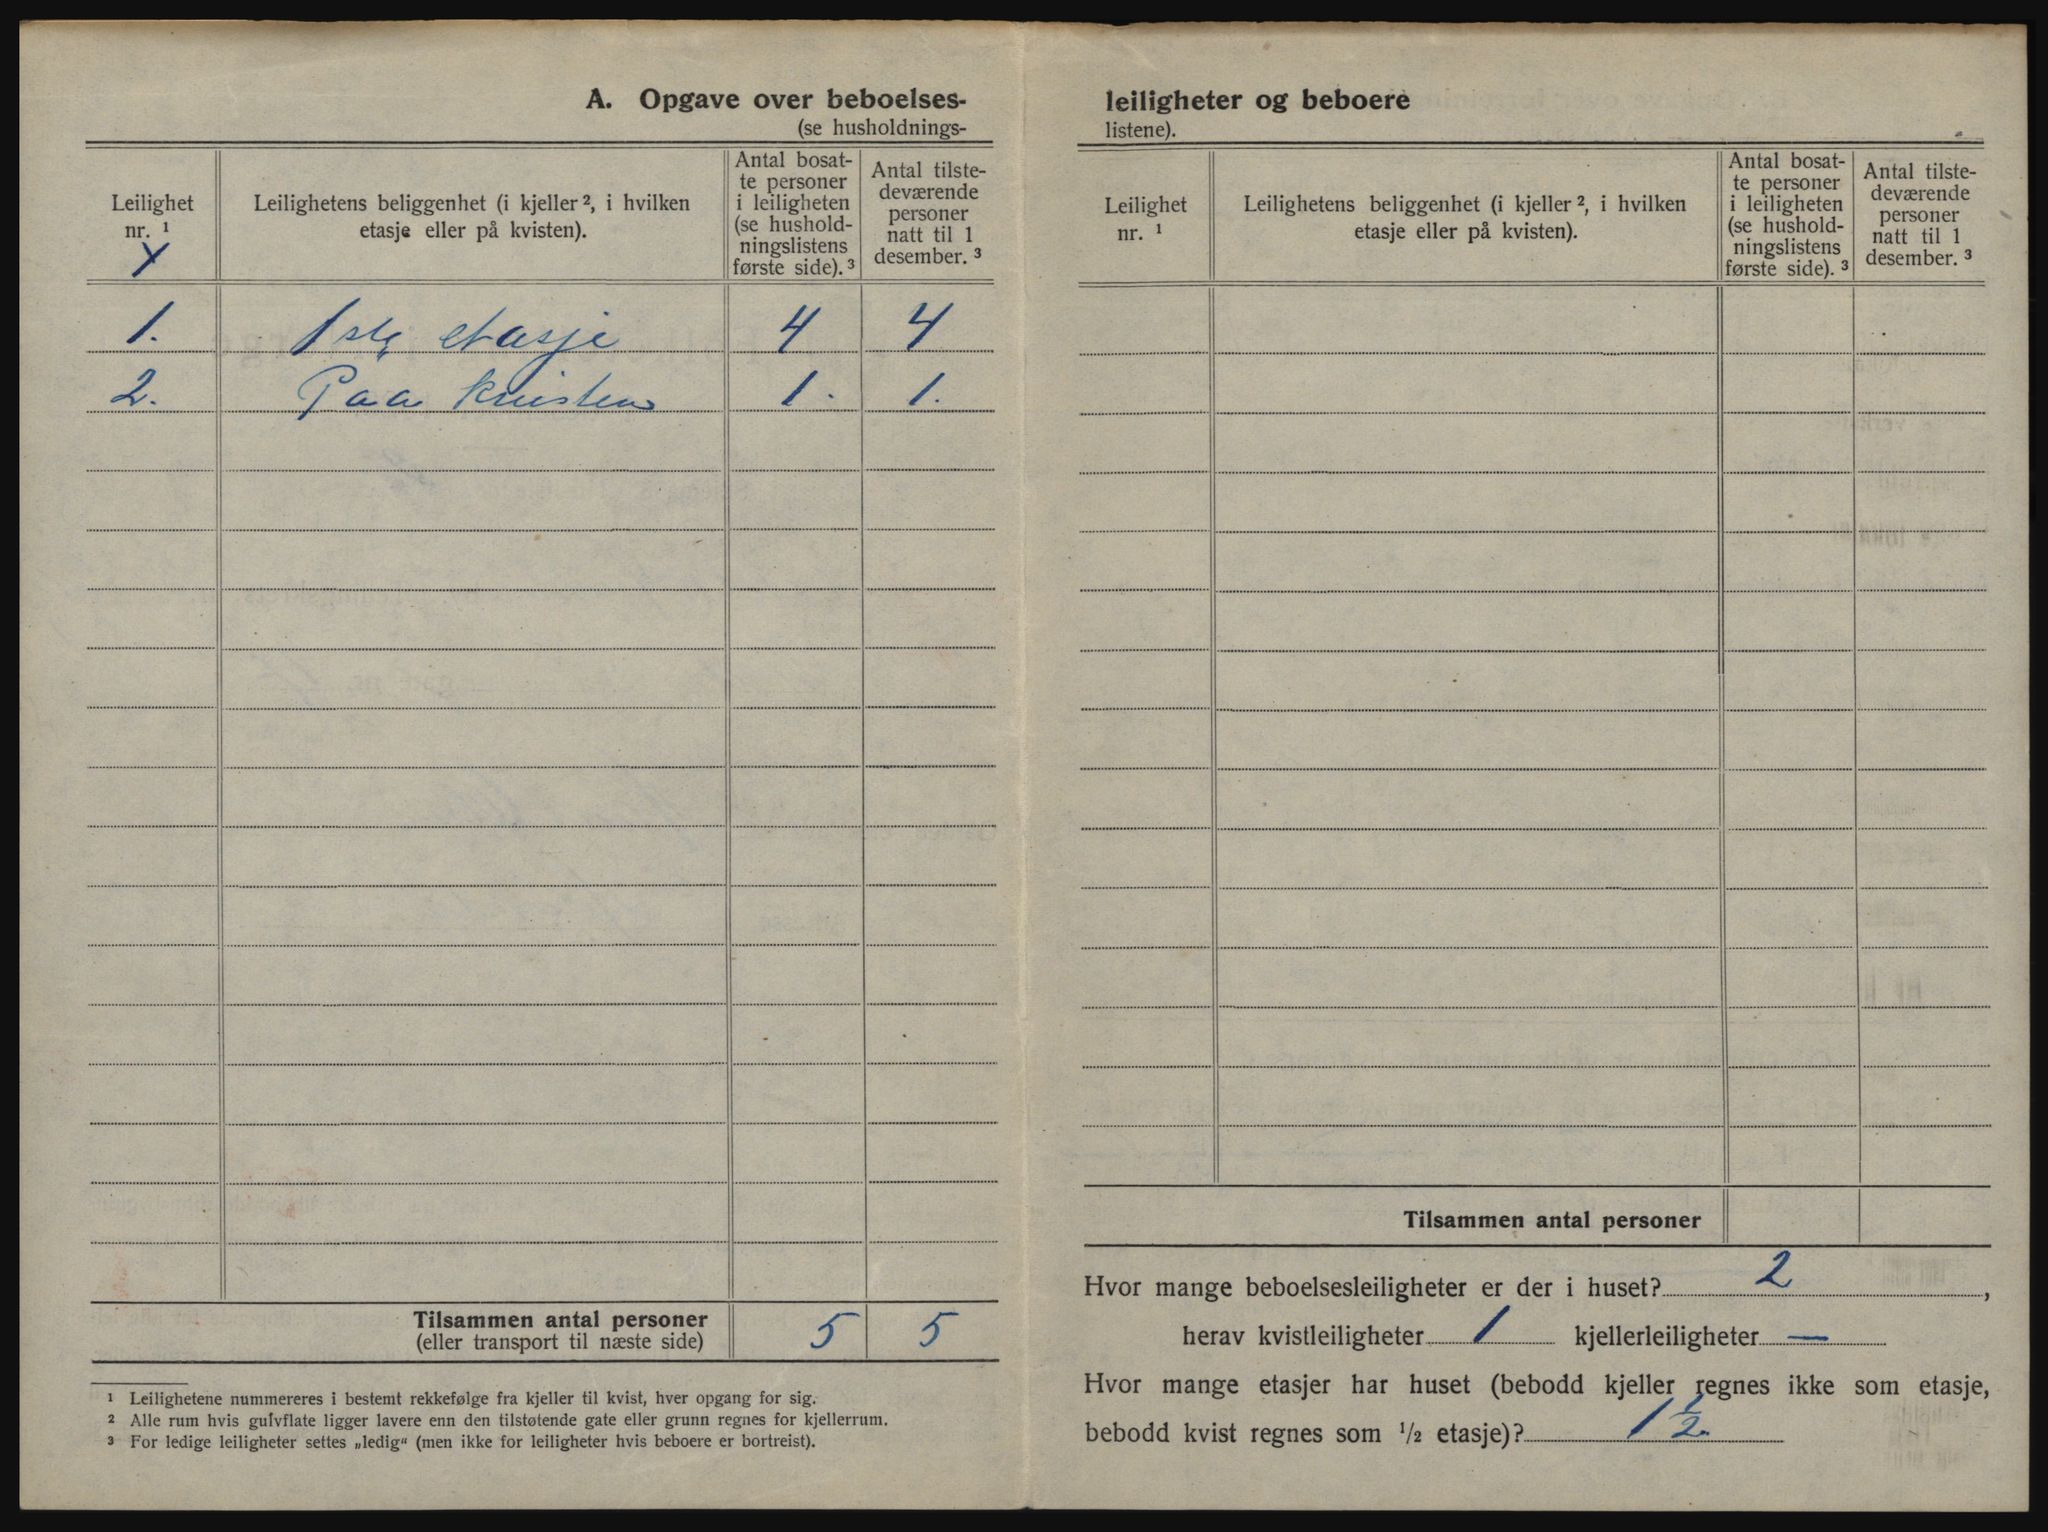 A. Opgave over beboelses-
(se husholdnings-
Leilighet
nr. ¹
Leilighetens beliggenhet (i kjeller ², i hvilken
etasje eller på kvisten).
Antal bosat-
te personer
i leiligheten
(se hushold-
ningslistens
første side). ³
Antal tilste-
deværende
personer
natt til 1
desember. ³
1. 1ste etasje 4 4
2. Paa kvisten 1. 1.
Tilsammen antal personer 5 5
(eller transport til næste side)
¹ Leilighetene nummereres i bestemt rekkefølge fra kjeller til kvist, hver opgang for sig.
² Alle rum hvis gulvflate ligger lavere enn den tilstøtende gate eller grunn regnes for kjellerrum.
³ For ledige leiligheter settes „ledig“ (men ikke for leiligheter hvis beboere er bortreist).
leiligheter og beboere
listene).
Leilighet
nr. ¹
Leilighetens beliggenhet (i kjeller ², i hvilken
etasje eller på kvisten).
Antal bosat-
te personer
i leiligheten
(se hushold-
ningslistens
første side). ³
Antal tilste-
deværende
personer
natt til 1
desember. ³
Tilsammen antal personer
Hvor mange beboelsesleiligheter er der i huset? 2,
herav kvistleiligheter 1 kjellerleiligheter —
Hvor mange etasjer har huset (bebodd kjeller regnes ikke som etasje,
bebodd kvist regnes som ½ etasje)? 1 ½.